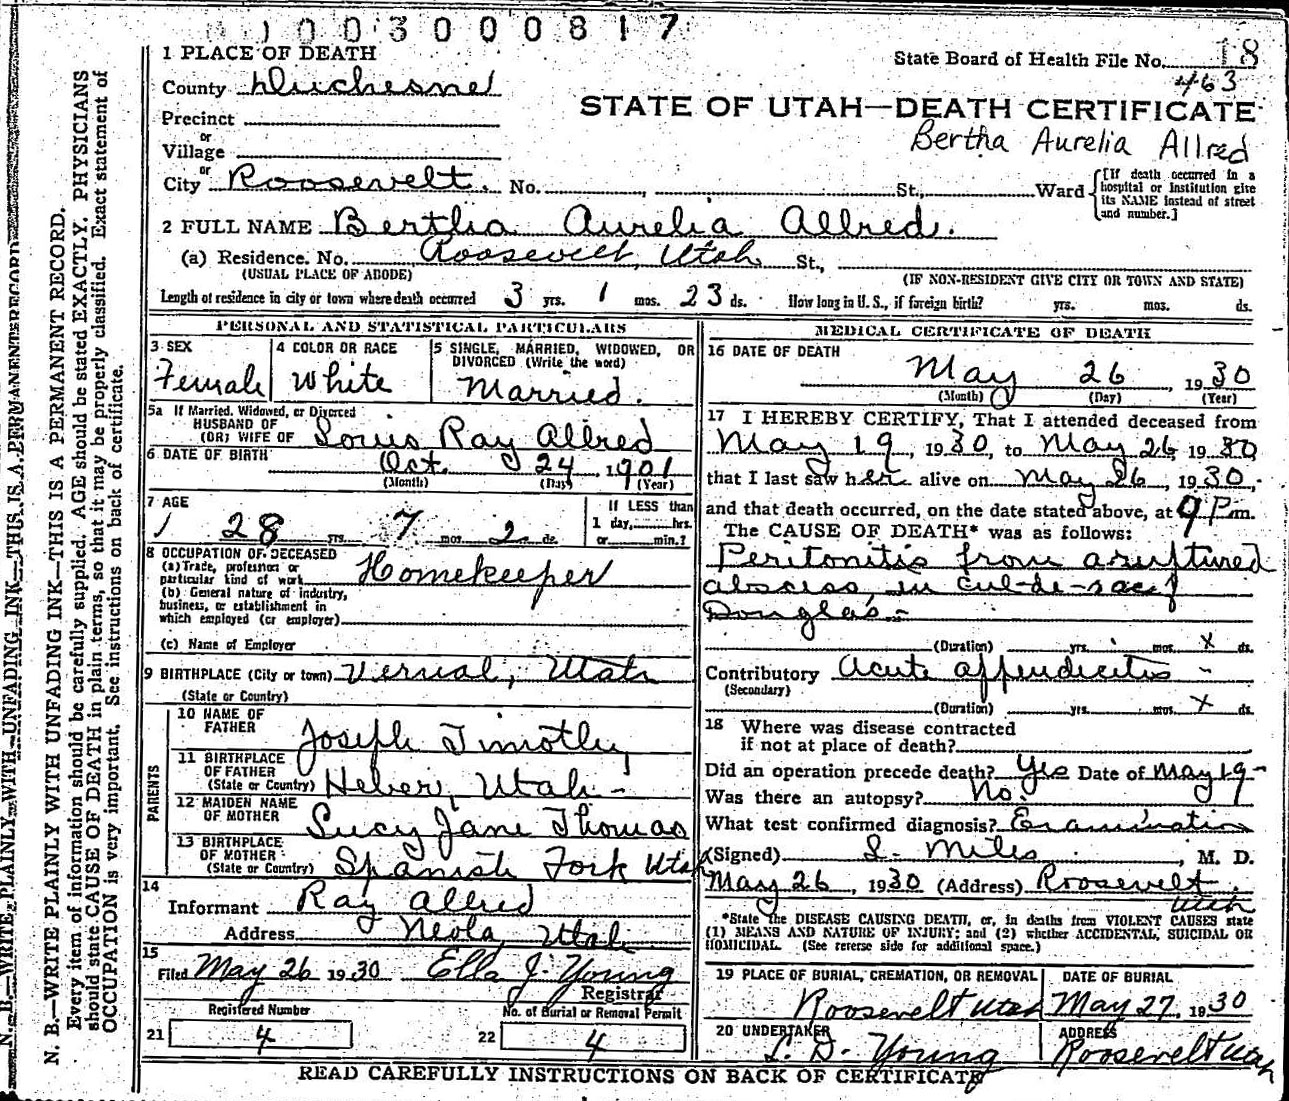 1003000817
1 PLACE OF DEATH
State Board of Health File No. 18
County Duchesne
463
STATE OF UTAH—DEATH CERTIFICATE
Precinct
Bertha Aurelia Allred
or
Village
or
City Roosevelt. No. , St., Ward
[If death occurred in a hospital or institution give its NAME instead of street and number.]
2 FULL NAME Bertha Aurelia Allred.
(a) Residence. No. Roosevelt, Utah St.,
(USUAL PLACE OF ABODE) (IF NON-RESIDENT GIVE CITY OR TOWN AND STATE)
Length of residence in city or town where death occurred 3 yrs. 1 mos. 23 ds. How long in U. S., if foreign birth? yrs. mos. ds.
PERSONAL AND STATISTICAL PARTICULARS
3 SEX
Female
4 COLOR OR RACE
White
5 SINGLE, MARRIED, WIDOWED, OR
DIVORCED (Write the word)
Married.
5a If Married, Widowed, or Divorced
HUSBAND OF
(OR) WIFE OF Louis Ray Allred
6 DATE OF BIRTH Oct. 24 1901
(Month) (Day) (Year)
7 AGE
28 yrs. 7 mos. 2 ds.
If LESS than
1 day, hrs.
or min.?
8 OCCUPATION OF DECEASED
(a) Trade, profession or
particular kind of work Homekeeper
(b) General nature of industry,
business, or establishment in
which employed (or employer)
(c) Name of Employer
9 BIRTHPLACE (City or town) Vernal, Utah
(State or Country)
PARENTS
10 NAME OF
FATHER Joseph Timothy
11 BIRTHPLACE
OF FATHER
(State or Country) Heber, Utah-
12 MAIDEN NAME
OF MOTHER Lucy Jane Thomas
13 BIRTHPLACE
OF MOTHER
(State or Country) Spanish Fork Utah
14
Informant Ray Allred
Address Neola, Utah
15
Filed May 26 1930 Ella J. Young
Registrar
Registered Number
21 4
No. of Burial or Removal Permit
22 4
MEDICAL CERTIFICATE OF DEATH
16 DATE OF DEATH
May 26, 1930
(Month) (Day) (Year)
17 I HEREBY CERTIFY, That I attended deceased from
May 19, 1930, to May 26, 1930
that I last saw her alive on May 26, 1930,
and that death occurred, on the date stated above, at 9 P.m.
The CAUSE OF DEATH* was as follows:
Peritonitis from a ruptured
abscess, in cul-de-sac of
Douglas-
(Duration) yrs. mos. x ds.
Contributory Acute appendicitis -
(Secondary)
(Duration) yrs. mos. x ds.
18 Where was disease contracted
if not at place of death?
Did an operation precede death? Yes Date of May 19-
Was there an autopsy? No.
What test confirmed diagnosis? Examination
(Signed) Miles, M. D.
May 26, 1930 (Address) Roosevelt.
Utah
*State the DISEASE CAUSING DEATH, or, in deaths from VIOLENT CAUSES state
(1) MEANS AND NATURE OF INJURY; and (2) whether ACCIDENTAL, SUICIDAL OR
HOMICIDAL. (See reverse side for additional space.)
19 PLACE OF BURIAL, CREMATION, OR REMOVAL
Roosevelt Utah
DATE OF BURIAL
May 27, 1930
20 UNDERTAKER
L. D. Young
ADDRESS
Roosevelt Utah
READ CAREFULLY INSTRUCTIONS ON BACK OF CERTIFICATE
N. B.—WRITE PLAINLY WITH UNFADING INK—THIS IS A PERMANENT RECORD
N. B.—WRITE PLAINLY WITH UNFADING INK—THIS IS A PERMANENT RECORD.
Every item of information should be carefully supplied. AGE should be stated EXACTLY. PHYSICIANS
should state CAUSE OF DEATH in plain terms, so that it may be properly classified. Exact statement of
OCCUPATION is very important. See instructions on back of certificate.